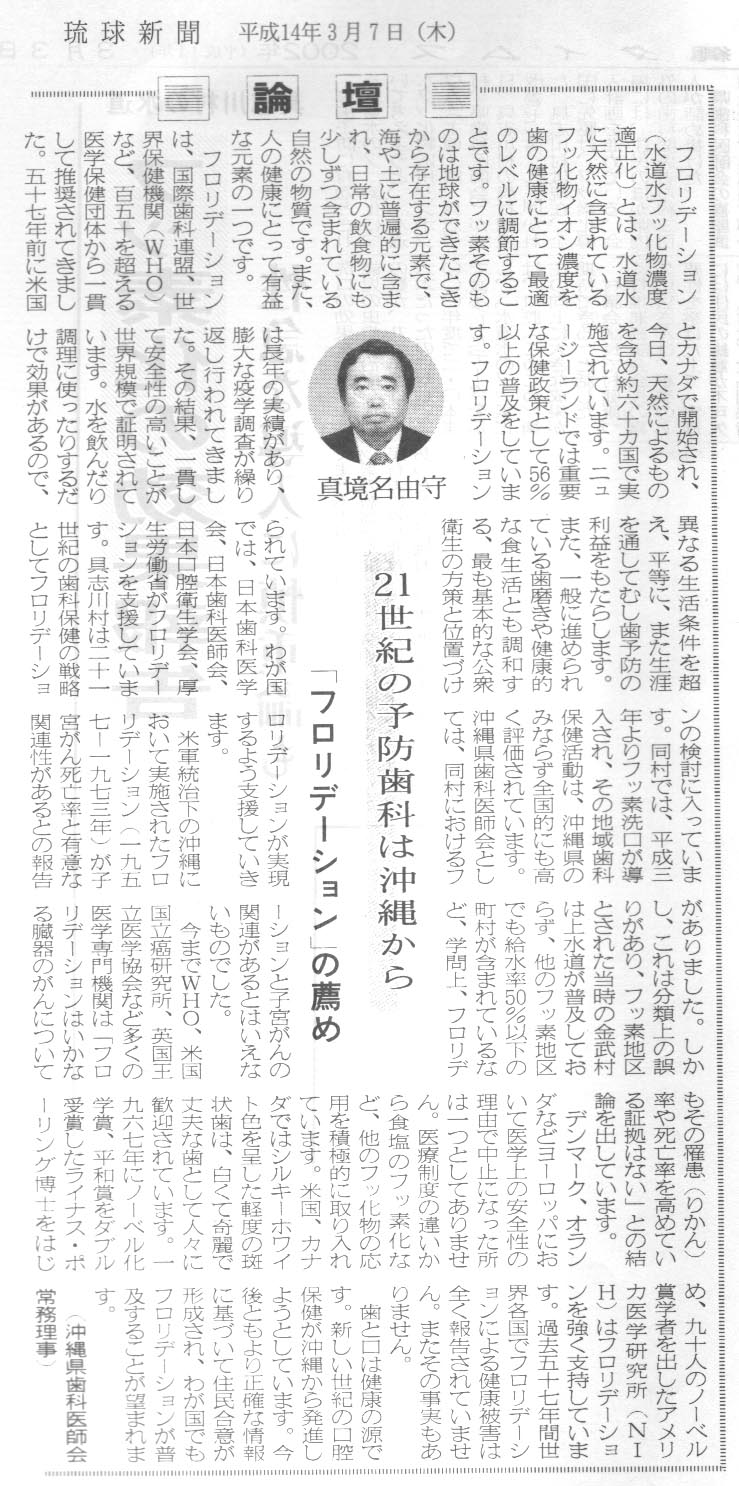 琉球新聞　平成14年3月7日（木）
論壇
21世紀の予防歯科は沖縄から
「フロリデーション」の薦め
真境名由守
フロリデーション
（水道水フッ化物濃度
適正化）とは、水道水
に天然に含まれている
フッ化物イオン濃度を
歯の健康にとって最適
のレベルに調節するこ
とです。フッ素そのも
のは地球ができたとき
から存在する元素で、
海や土に普遍的に含ま
れ、日常の飲食物にも
少しずつ含まれている
自然の物質です。また、
人の健康にとって有益
な元素の一つです。
フロリデーション
は、国際歯科連盟、世
界保健機関（WHO）
など、百五十を超える
医学保健団体から一貫
して推奨されてきまし
た。五十七年前に米国
とカナダで開始され、
今日、天然によるもの
を含め約六十カ国で実
施されています。ニュ
ージーランドでは重要
な保健政策として56%
以上の普及をしていま
す。フロリデーション
は長年の実績があり、
膨大な疫学調査が繰り
返し行われてきまし
た。その結果、一貫し
て安全性の高いことが
世界規模で証明されて
います。水を飲んだり
調理に使ったりするだ
けで効果があるので、
異なる生活条件を超
え、平等に、また生涯
を通してむし歯予防の
利益をもたらします。
また、一般に進められ
ている歯磨きや健康的
な食生活とも調和す
る、最も基本的な公衆
衛生の方策と位置づけ
られています。わが国
では、日本歯科医学
会、日本歯科医師会、
日本口腔衛生学会、厚
生労働省がフロリデー
ションを支援していま
す。具志川村は二十一
世紀の歯科保健の戦略
としてフロリデーショ
ンの検討に入っていま
す。同村では、平成三
年よりフッ素洗口が導
入され、その地域歯科
保健活動は、沖縄県の
みならず全国的にも高
く評価されています。
沖縄県歯科医師会とし
ては、同村におけるフ
ロリデーションが実現
するよう支援していき
ます。
米軍統治下の沖縄に
おいて実施されたフロ
リデーション（一九五
七ー一九七三年）が子
宮がん死亡率と有意な
関連性があるとの報告
がありました。しか
し、これは分類上の誤
りがあり、フッ素地区
とされた当時の金武村
は上水道が普及してお
らず、他のフッ素地区
でも給水率50%以下の
町村が含まれているな
ど、学問上、フロリデ
ーションと子宮がんの
関連があるとはいえな
いものでした。
今までWHO、米国
国立癌研究所、英国王
立医学協会など多くの
医学専門機関は「フロ
リデーションはいかな
る臓器のがんについて
もその罹患（りかん）
率や死亡率を高めてい
る証拠はない」との結
論を出しています。
デンマーク、オラン
ダなどヨーロッパにお
いて医学上の安全性の
理由で中止になった所
は一つとしてありませ
ん。医療制度の違いか
ら食塩のフッ素化な
ど、他のフッ化物の応
用を積極的に取り入れ
ています。米国、カナ
ダではシルキーホワイ
ト色を呈した軽度の斑
状歯は、白くて奇麗で
丈夫な歯として人々に
歓迎されています。一
九六七年にノーベル化
学賞、平和賞をダブル
受賞したライナス・ポ
ーリング博士をはじ
め、九十人のノーベル
賞学者を出したアメリ
カ医学研究所（NI
H）はフロリデーショ
ンを強く支持していま
す。過去五十七年間世
界各国でフロリデーシ
ョンによる健康被害は
全く報告されていませ
ん。またその事実もあ
りません。
歯と口は健康の源で
す。新しい世紀の口腔
保健が沖縄から発進し
ようとしています。今
後ともより正確な情報
に基づいて住民合意が
形成され、わが国でも
フロリデーションが普
及することが望まれま
す。
（沖縄県歯科医師会
常務理事）